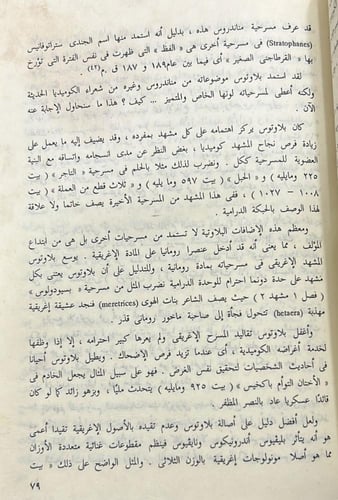 قد عرف مسرحية مناندروس هذه ، بدليل أنه استمد منها اسم الجندى ستراتوفانيس
(Stratophanes) فى مسرحية أخرى هى « الفظ » التى ظهرت فى نفس الفترة التى تؤرخ
بها « القرطاجنى الصغير » أى فيما بين عام ١٨٩ و ١٨٧ ق .م(٤٢).
لقد استمد بلاوتوس موضوعاته من مناندروس وغيره من شعراء الكوميديا الحديثة
ولكنه أعطى لمسرحياته لونها الخاص والمتميز ... كيف ؟ هذا ما سنحاول الإجابة عنه
الآن .
كان بلاوتوس يركز اهتمامه على كل مشهد بمفرده ، وقد يضيف إليه ما يعمل على
زيادة فرص نجاح المشهد كوميديا ، بغض النظر عن مدى انسجامه واتساقه مع البنية
العضوية للمسرحية ككل . ونضرب لذلك مثلا بالحلم فى مسرحية « التاجر » ( بيت
٢٢٥ ومايليه ) و « الحبل » ( بيت ٥٩٧ وما يليه ) و « ثلاث قطع من العملة » ( بيت
١٠٠٨ – ١٠٢٧ ) ، ففى هذا المشهد من المسرحية الأخيرة يصف خاتما ولا علاقة
لهذا الوصف بالحبكة الدرامية .
ومعظم هذه الإضافات البلاوتية لا تستمد من مسرحيات أخرى بل هى من ابتداع
المؤلف ، مما يعنى أنه قد أدخل عنصرا رومانيا على المادة الإغريقية . يوسع بلاوتوس
المشهد الإغريقى فى مسرحياته بمادة رومانية ، وللتدليل على أن بلاوتوس يعتنى بكل
مشهد على حدة دونما احترام للوحدة الدرامية نضرب المثل من مسرحية « بسيودولوس »
( فصل ١ مشهد ٢ ) حيث يصف الشاعر بنات الهوى (meretrices) فنجد عشيقة إغريقية
مهذبة (hetaera) تتحول فجأة إلى صاحبة ماخور رومانى قذر .
وأغفل بلاوتوس تقاليد المسرح الإغريقى ولم يعرها كبير احترامه ، إلا إذا وظفها
لخدمة أغراضه الكوميدية ، أى عندما تزيد فرص الإضحاك . ويطيل بلاوتوس أحيانا
فى أحاديث الشخصيات لتحقيق نفس الغرض . فهو على سبيل المثال يجعل الخادم فى
« الأختان التوأم باكخيس » ( بيت ٩٢٥ ومايليه ) يتحدث مليًا ، ويزهو زائد كما لو كان
قائدًا عسكريا عاد بالنصر المظفر .
ولعل أفضل دليل على أصالة بلاوتوس وعدم تقيده بالأصول الإغريقية تقيدا أعمى
هو أنه يتأثر بليفيوس أندرونيكوس ونايفيوس فينظم مقطوعات غنائية متعددة الأوزان
مما هو أصلا مونولوجات إغريقية بالوزن الثلاثى . والمثل الواضح على ذلك « بيت
٧٩